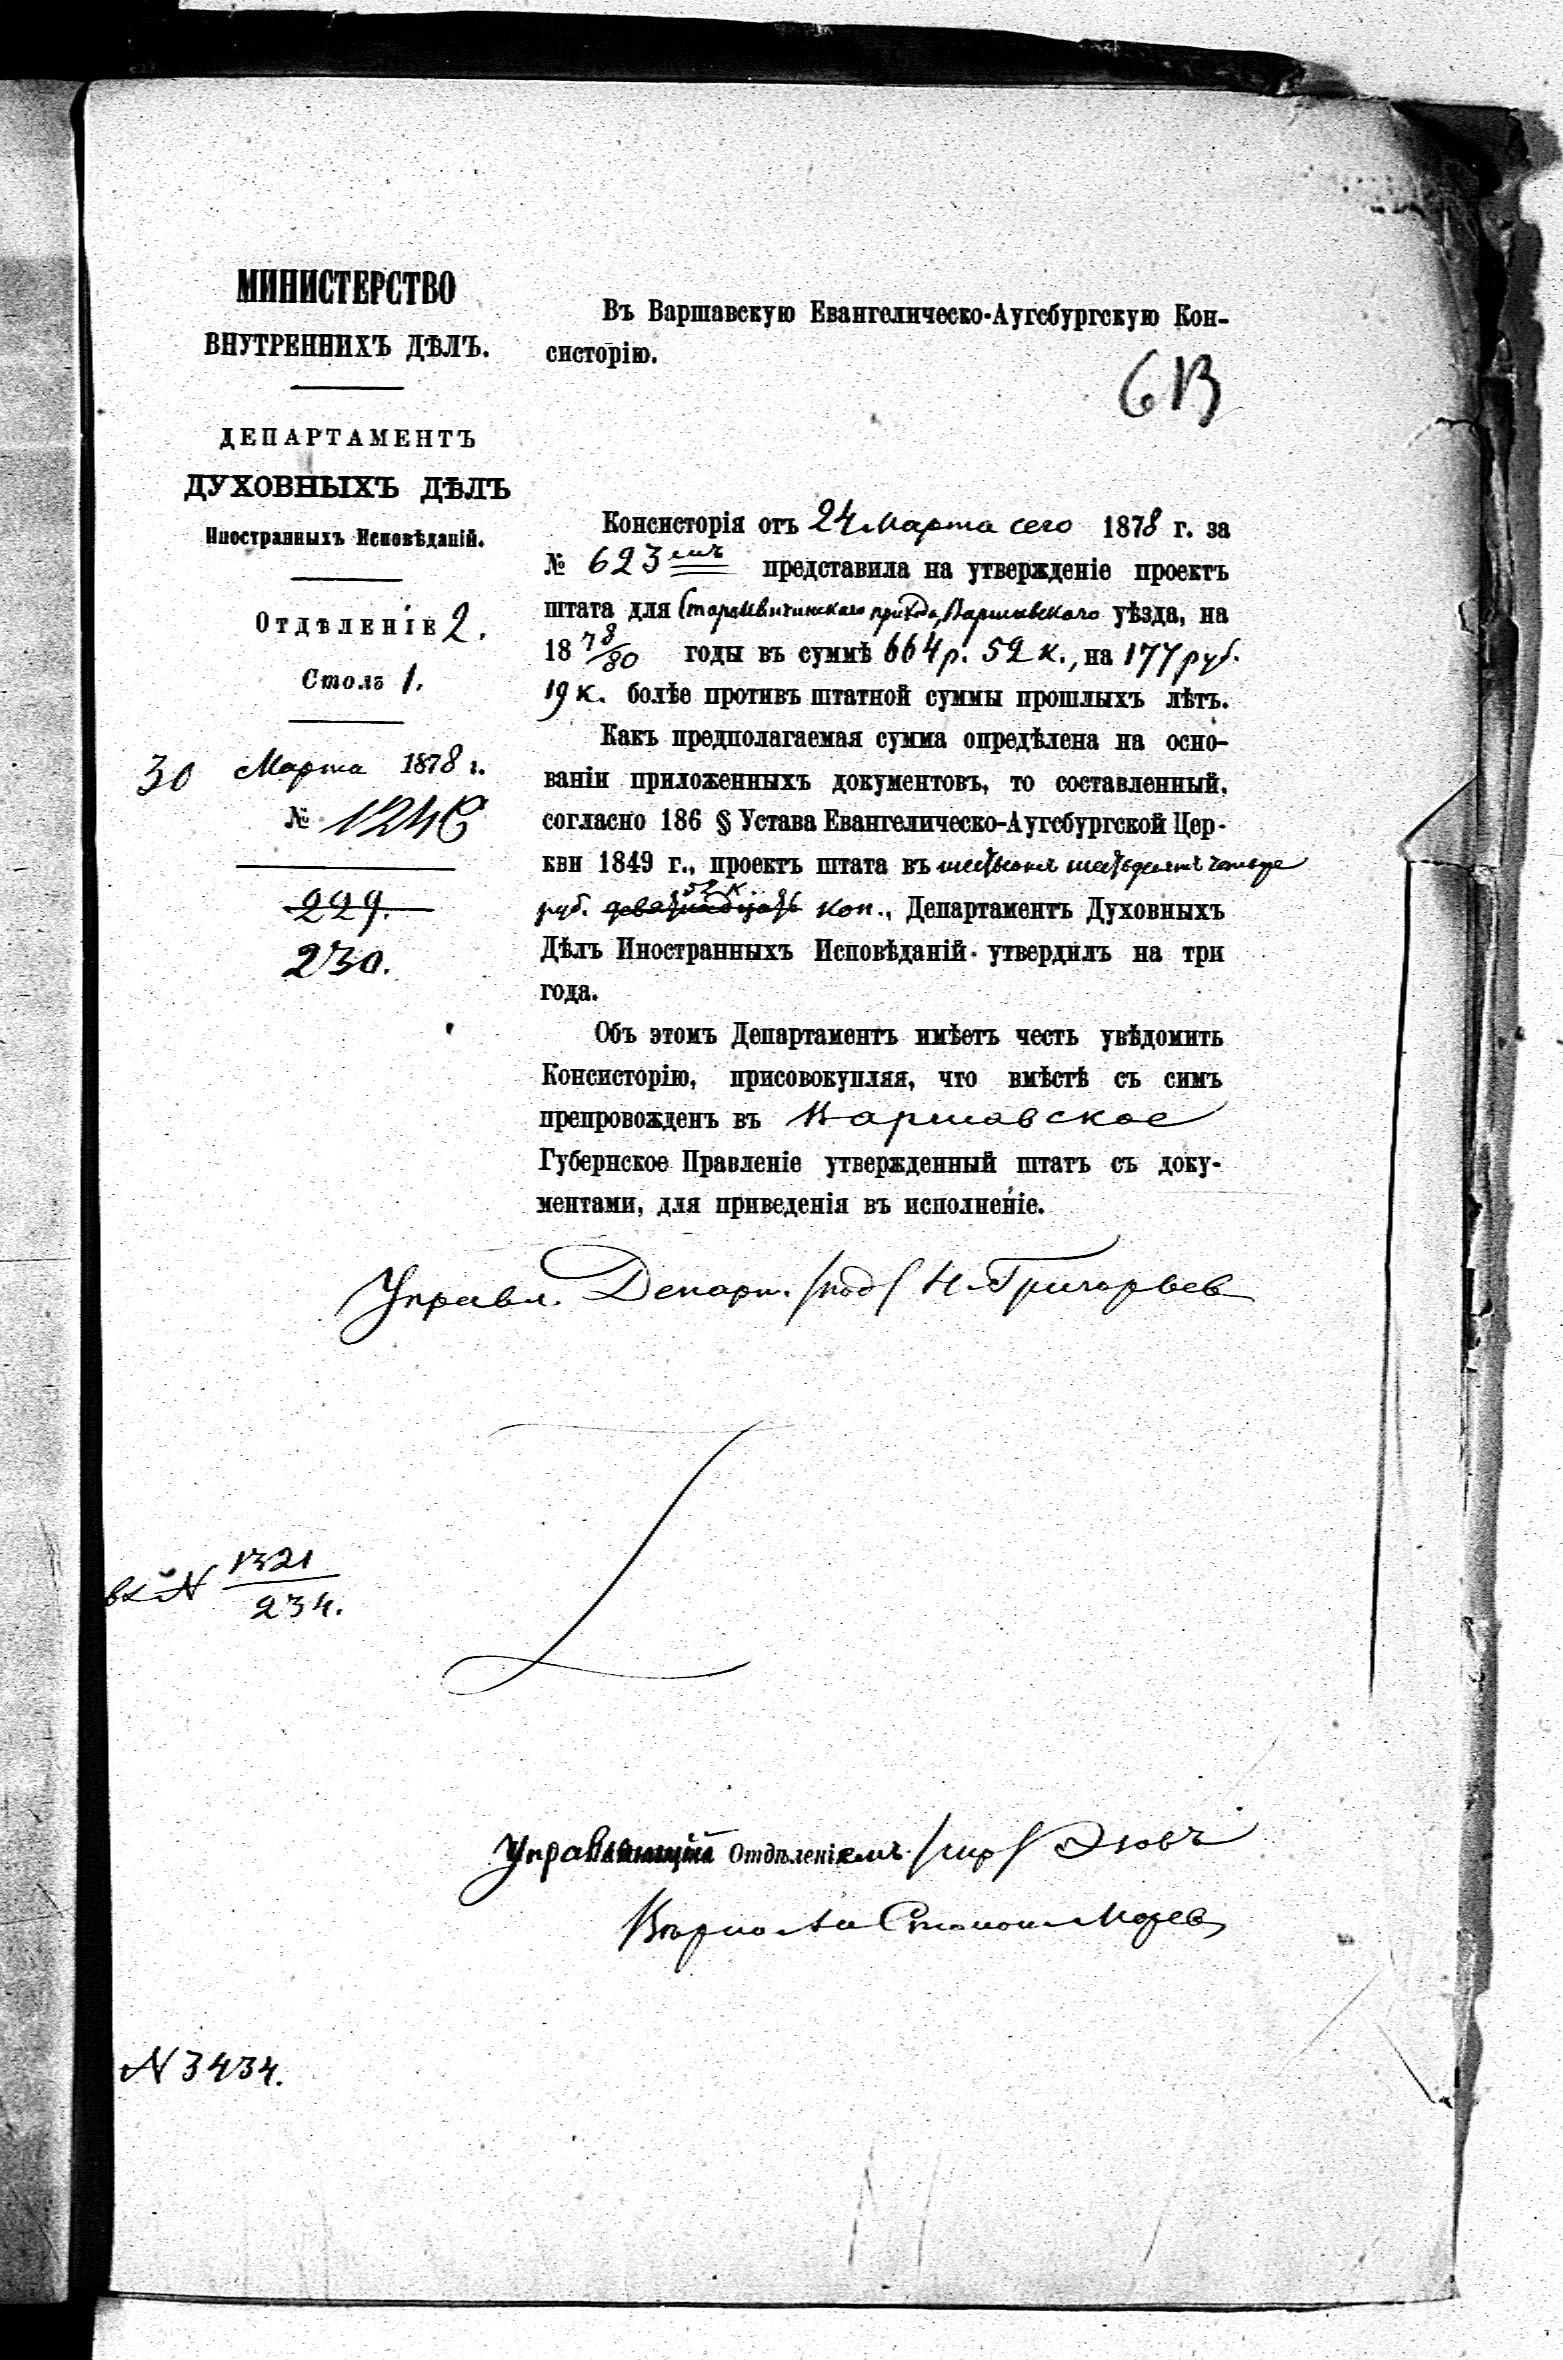 МИНИСТЕРСТВО
ВНУТРЕННИХЪ ДѢЛЪ.
ДЕПАРТАМЕНТЪ
ДУХОВНЫХЪ ДѢЛЪ
Иностранныхъ Исповѣданій.
Отдѣленіе 2.
Столъ 1.
30 Марта 1878 г.
№ 1246
229.
230.
Въ Варшавскую Евангелическо-Аугсбургскую Кон-
систорію.
Консисторія отъ 24 Марта сего 1878 г. за
№ 623 представила на утвержденіе проектъ
штата для прихода, Варшавскаго уѣзда, на
18 78/80 годы въ суммѣ 664 р. 52 к., на 177 руб.
19 к. болѣе противъ штатной суммы прошлыхъ лѣтъ.
Какъ предполагаемая сумма опредѣлена на осно-
ваніи приложенныхъ документовъ, то составленный,
согласно 186 § Устава Евангелическо-Аугсбургской Цер-
кви 1849 г., проектъ штата въ шестьсотъ шестьдесятъ четыре
52 к.
руб. девятнадцать коп., Департаментъ Духовныхъ
Дѣлъ Иностранныхъ Исповѣданій утвердилъ на три
года.
Объ этомъ Департаментъ имѣетъ честь увѣдомить
Консисторію, присовокупляя, что вмѣстѣ съ симъ
препровожденъ въ Варшавское
Губернское Правленіе утвержденный штатъ съ доку-
ментами, для приведенія въ исполненіе.
Управл. Департ. /под/ Н. Григорьев
вх N 1321
234.
Управляющій Отдѣленіемъ /скр/
Вѣрно
N 3434.